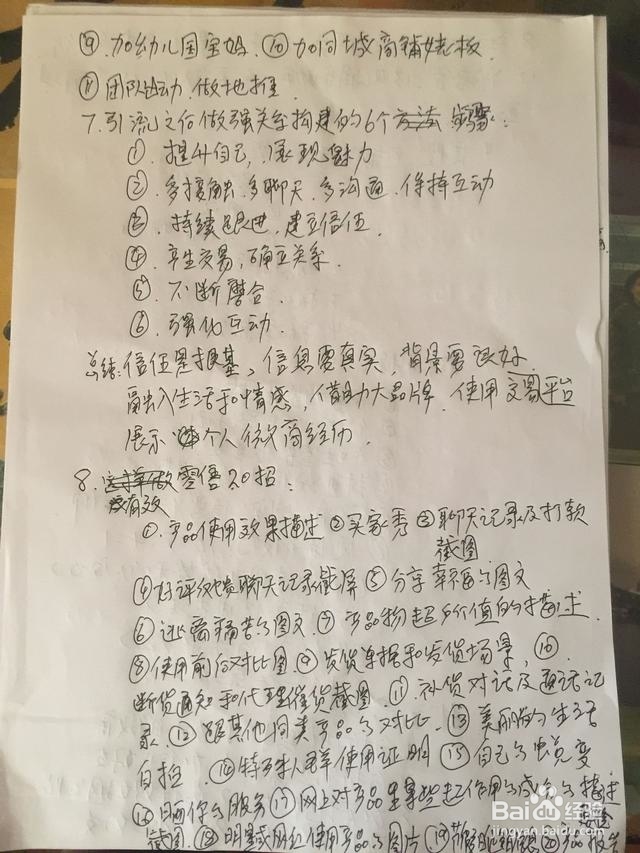 ⑨.加幼儿园宝妈.⑩加同城商铺老板.
⑪团队运动.做地推.
7.引流之后做强关系构建的6个方法 步骤:
①.提升自己,展现魅力
②.多接触.多聊天.多沟通.保持互动
③.持续跟进.建立信任.
④.产生交易,确立关系.
⑤.不断磨合.
⑥.强化互动.
总结:信任是根基,信息要真实,背景要良好.
融入生活和情感,借助大品牌.使用交易平台
展示 个人微商经历.
8. 零售20招:
有效
①.产品使用效果描述②买家秀③聊天记录及打款
截图
④好评反馈聊天记录截屏⑤分享幸福的图文
⑥逃离痛苦的图文.⑦产品物超所值的描述.
⑧使用前后对比图⑨发货单据和发货场景,⑩
断货通知和代理催货截图.⑪补货对话及通话记
录.⑫跟其他同类产品的对比.⑬美丽的生活
自拍.⑭特殊人群使用证明⑮自己的蜕变
⑯ 你的服务⑰网上对产品里某些起作用的成分的描述
截图.⑱明星或朋友使用产品的图片⑲ ⑳产品相关
Baidu经验
jingyan.baidu.com